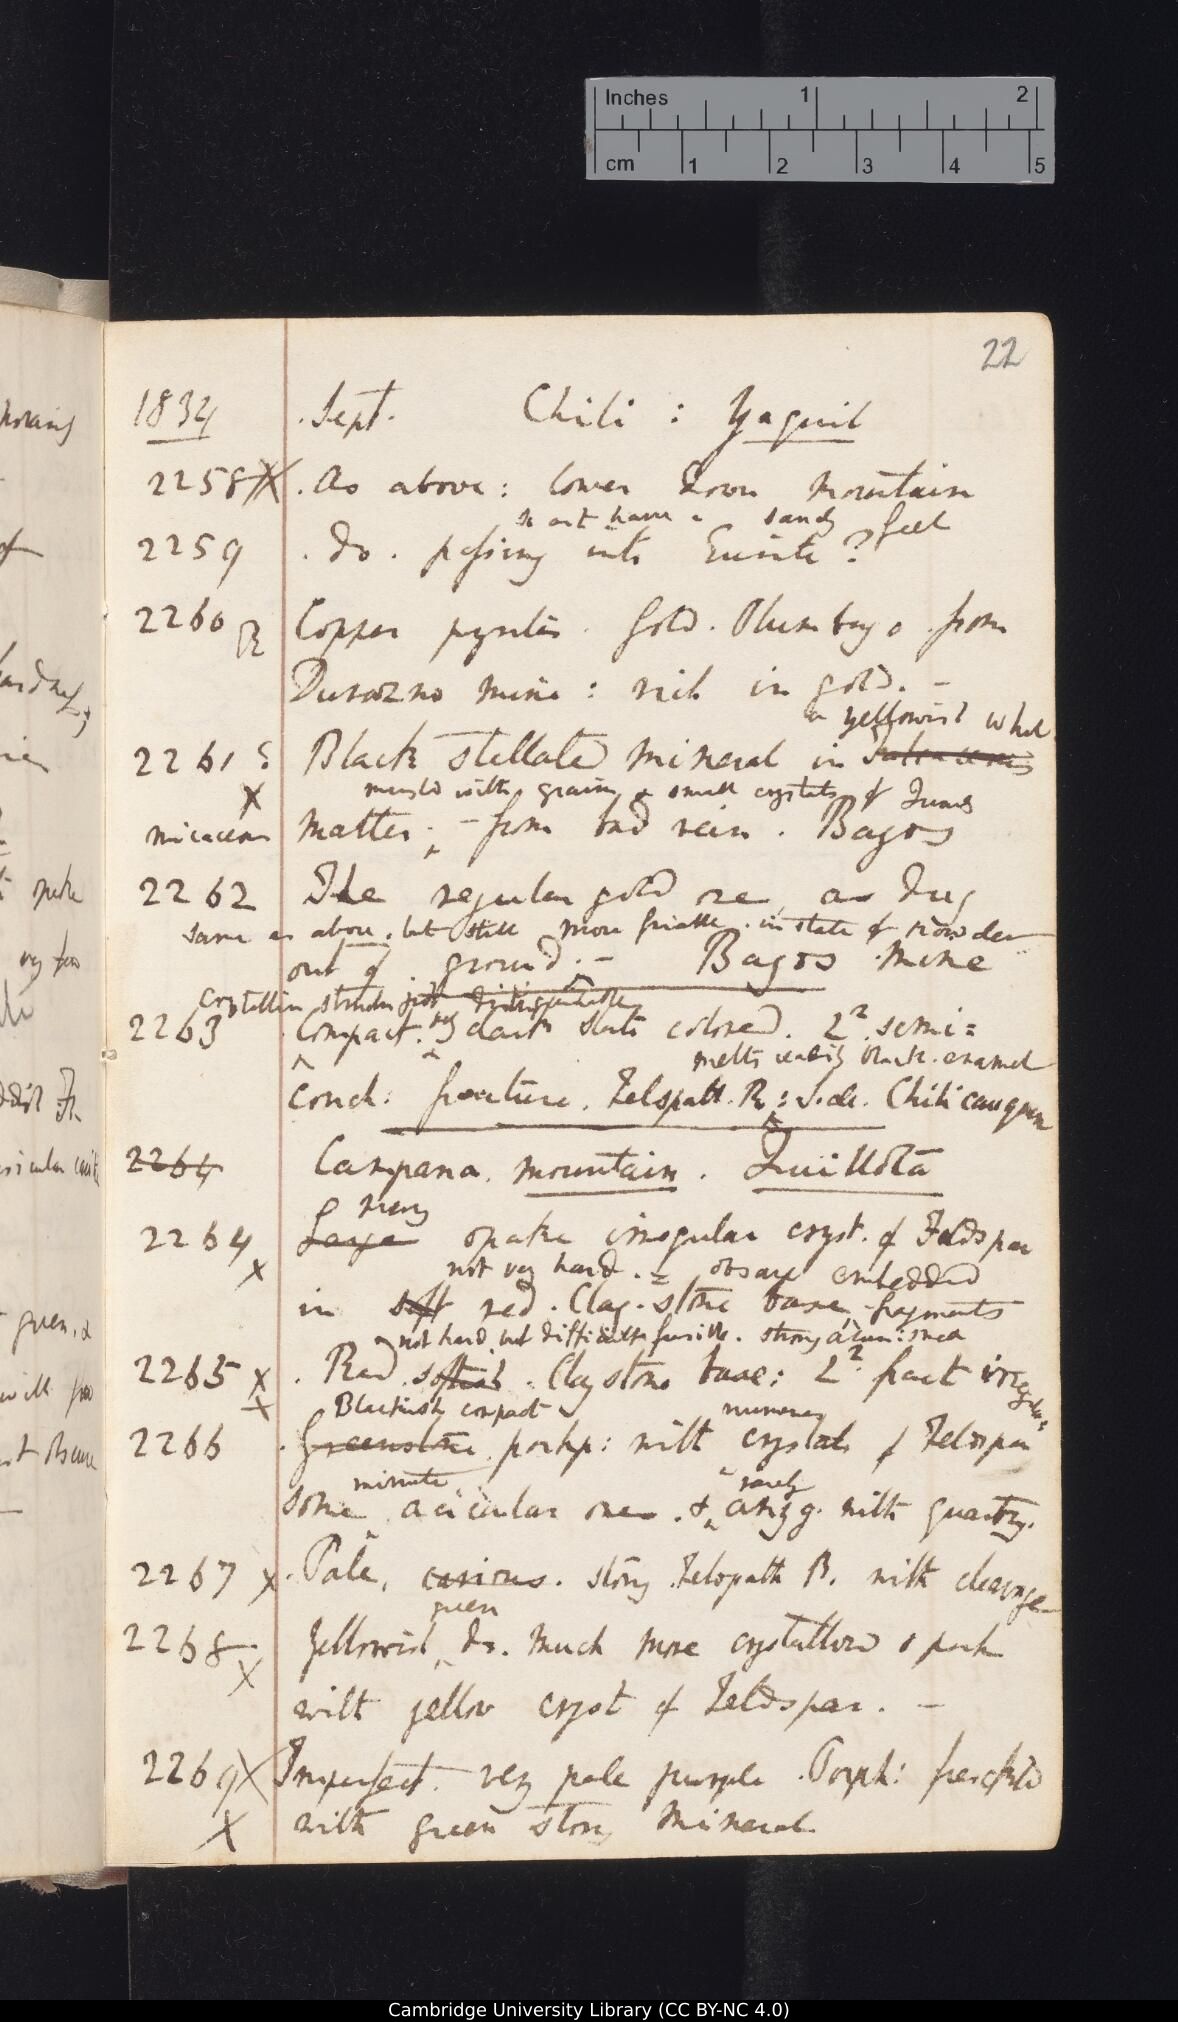 Inches 1 2
cm 1 2 3 4 5
22
1834 Sept. Chili : Yaquil
2258 X . As above: lower down mountain
does not have a sandy feel
2259 . do. passing into Eurite?
2260 R Copper pyrites. Gold. Plumbago from
Durazno mine: rich in gold. —
a yellowish white
2261 Black stellated mineral in
X mingled with grains & small crystals of
micaceous matter; – from bad vein. Bagos
2262 The regular gold ore, as dug
same as above, but still more friable. in state of powder
out of ground. – Bagos Mine
Crystallin structure just distinguishable
2263 Compact. very dark slate colored. L² semi=
melts easily black enamel
conch: fracture. Felspath. R: side. Chili cauquen
2264 Campana mountain. Quillota
many
2264 Large opake irregular cryst. of Feldspar
X not very hard. = obscure embedded
in soft red. Clay-stone base, fragments
not hard but difficultly fusible. strong alum: smell
2265 X . Red softish. Claystone base: L² fract irregular:
X Blackish compact numerous
2266 . Greenstone porhp: with crystals of Felspar
minute rarely
some acicular ones. & amyg. with quartz.
2267 X . Pale, curious. stony Felspath R. with cleavage
green
2268 Yellowish do. much more crystallized opake
X with yellow cryst of Feldspar. —
2269 X Imperfect. very pale purple. Porph: freckled
X with green stony mineral
Cambridge University Library (CC BY-NC 4.0)